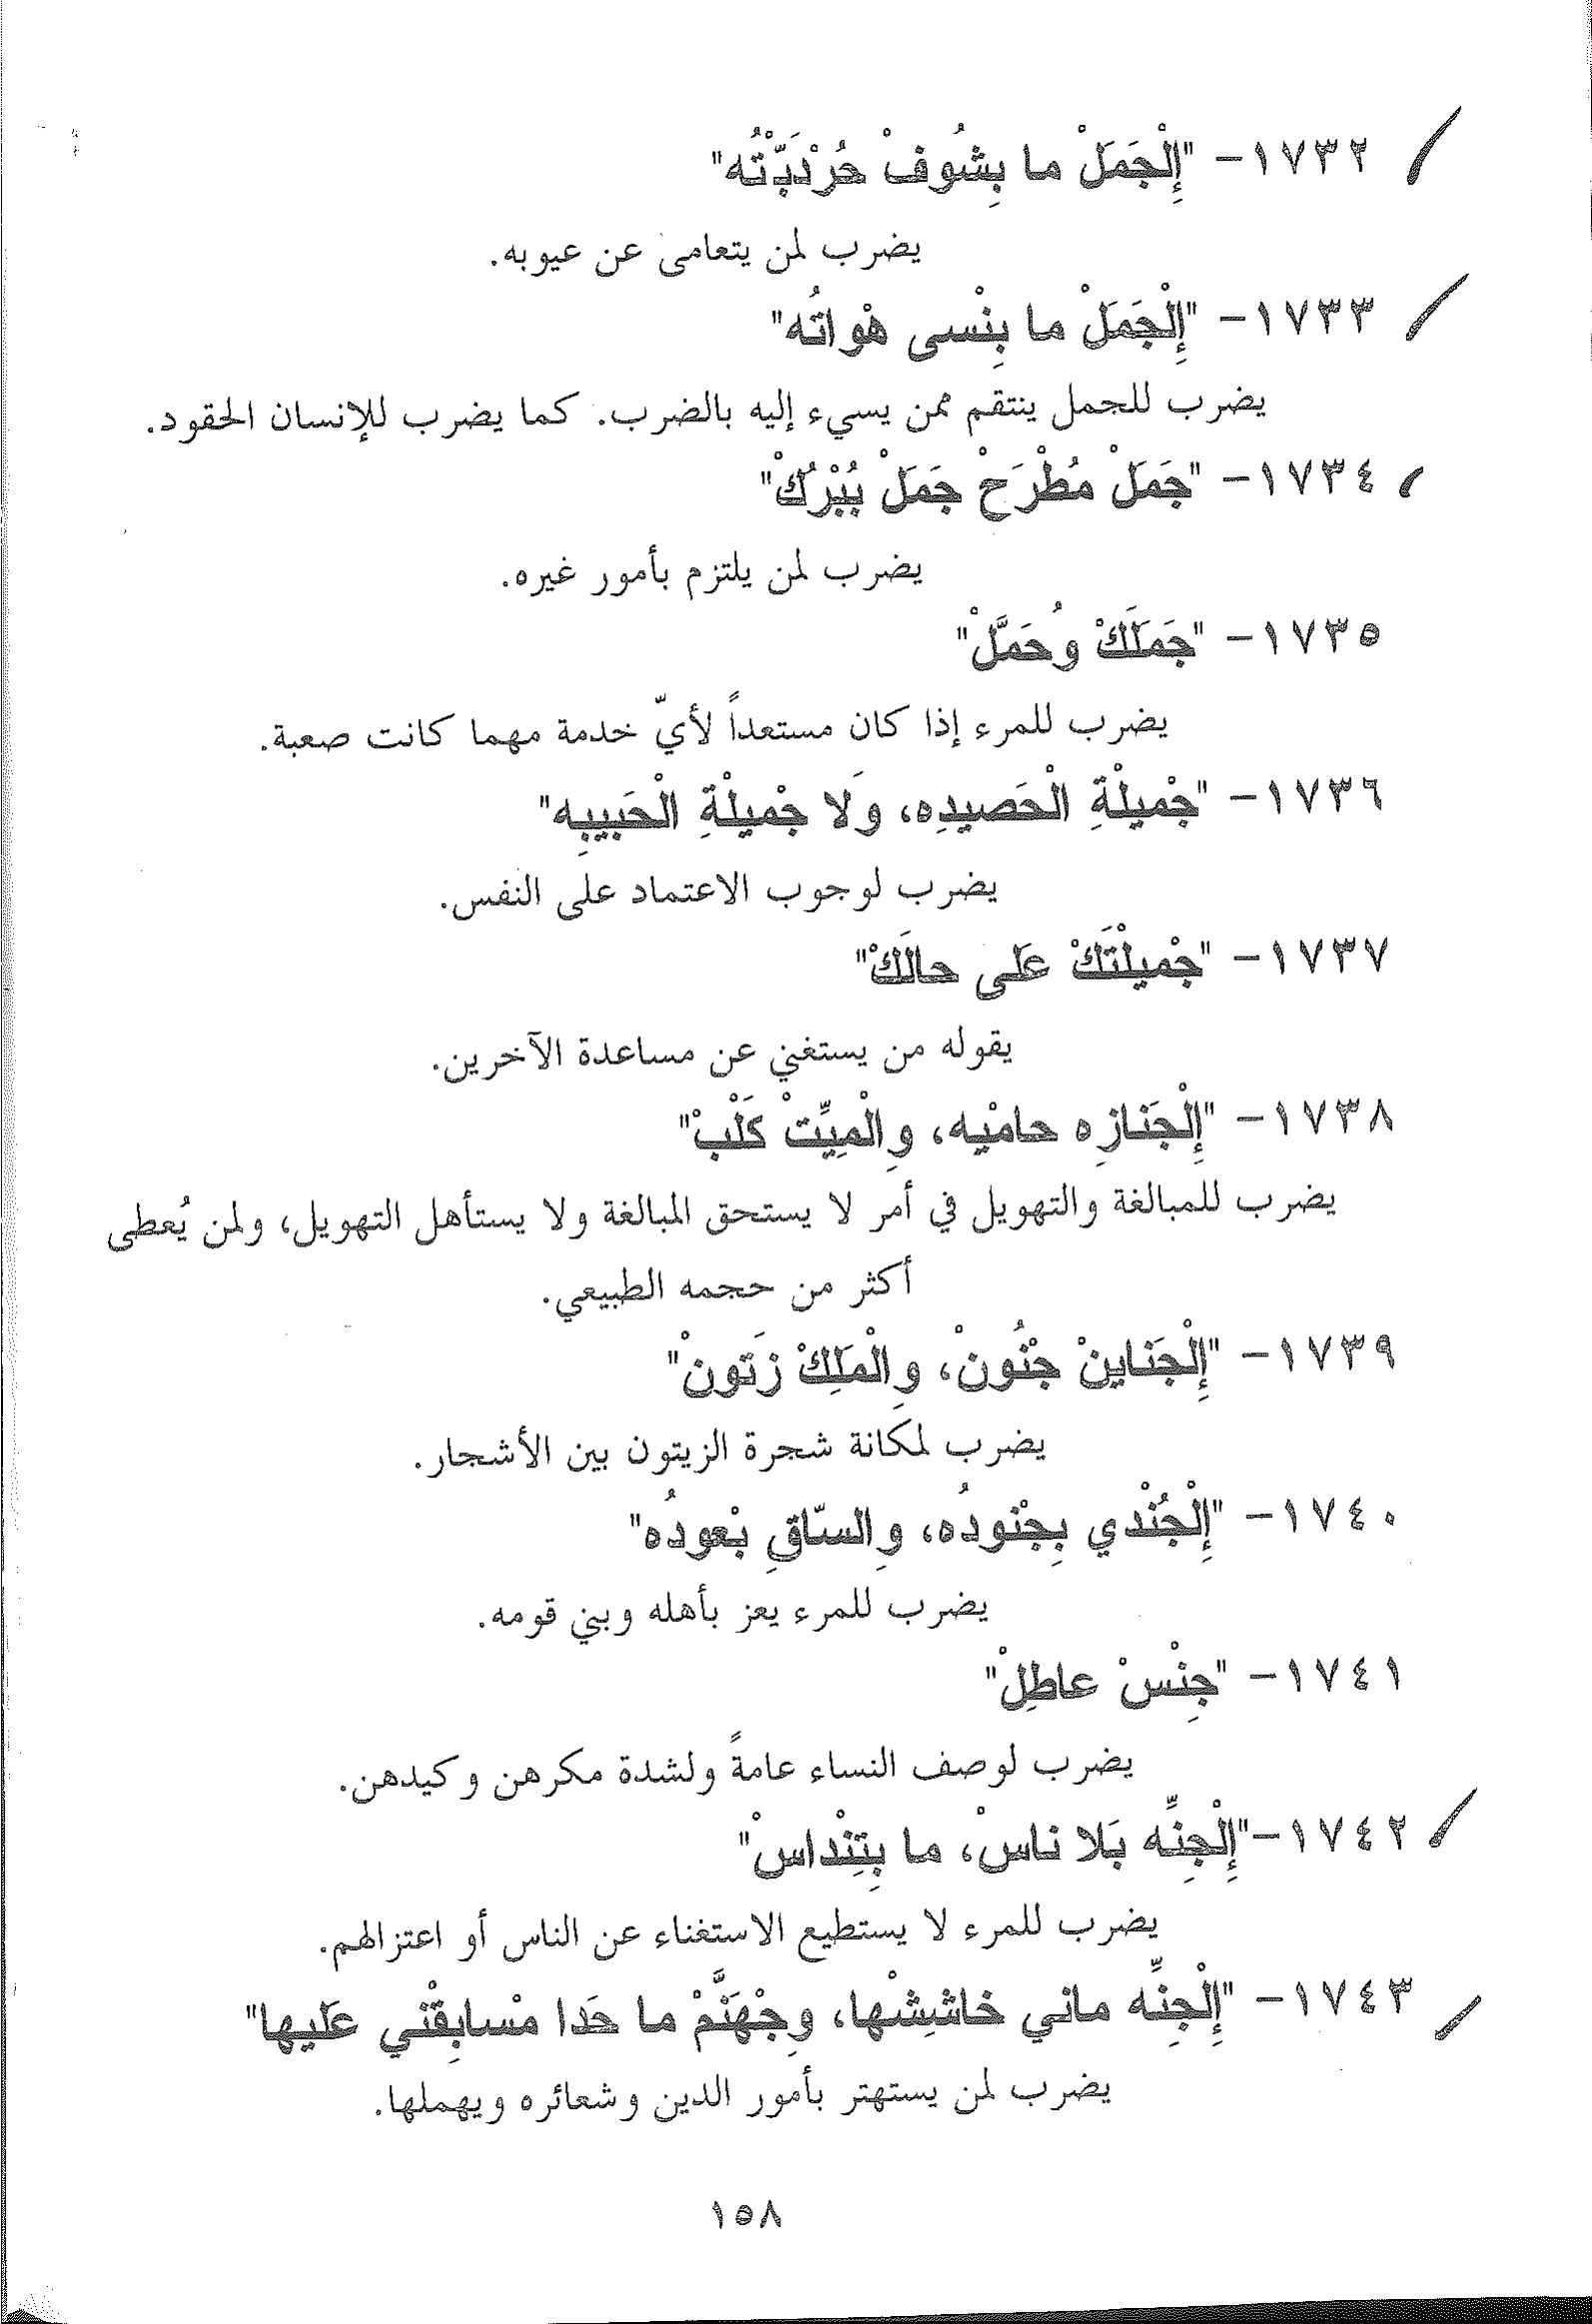 ١٧٣٢- "إِلْجَمَلْ ما بِشُوفْ حُرْدَبّْتُه"
يضرب لمن يتعامى عن عيوبه.
١٧٣٣- "إِلْجَمَلْ ما بِنْسى هْواتُه"
يضرب للجمل ينتقم ممن يسيء إليه بالضرب. كما يضرب للإنسان الحقود.
١٧٣٤- "جَمَلْ مُطْرَحْ جَمَلْ بُبْرُكْ"
يضرب لمن يلتزم بأمور غيره.
١٧٣٥- "جَمَلَكْ وُحَمَّلْ"
يضرب للمرء إذا كان مستعداً لأيّ خدمة مهما كانت صعبة.
١٧٣٦- "جْميلْةِ الْحَصيدِه، وَلا جْميلْةِ الْحَبيبِه"
يضرب لوجوب الاعتماد على النفس.
١٧٣٧- "جْميلْتَكْ عَلى حالَكْ"
يقوله من يستغني عن مساعدة الآخرين.
١٧٣٨- "إِلْجَنازِه حامْيِه، وِالْمِيِّتْ كَلْبْ"
يضرب للمبالغة والتهويل في أمر لا يستحق المبالغة ولا يستأهل التهويل، ولمن يُعطى
أكثر من حجمه الطبيعي.
١٧٣٩- "إِلْجَناينْ جْنُونْ، وِالْمَلِكْ زَتونْ"
يضرب لمكانة شجرة الزيتون بين الأشجار.
١٧٤٠- "إِلْجُنْدي بِجْنودُه، وِالسّاقِ بْعودُه"
يضرب للمرء يعز بأهله وبني قومه.
١٧٤١- "جِنْسْ عاطِلْ"
يضرب لوصف النساء عامةً ولشدة مكرهن وكيدهن.
١٧٤٢-"إِلْجِنِّه بَلا ناسْ، ما بِتِنْداسْ"
يضرب للمرء لا يستطيع الاستغناء عن الناس أو اعتزالهم.
١٧٤٣- "إِلْجِنِّه ماني خاشِشْها، وِجْهَنَّمْ ما حَدا مْسابِقْني عَليها"
يضرب لمن يستهتر بأمور الدين وشعائره ويهملها.
١٥٨